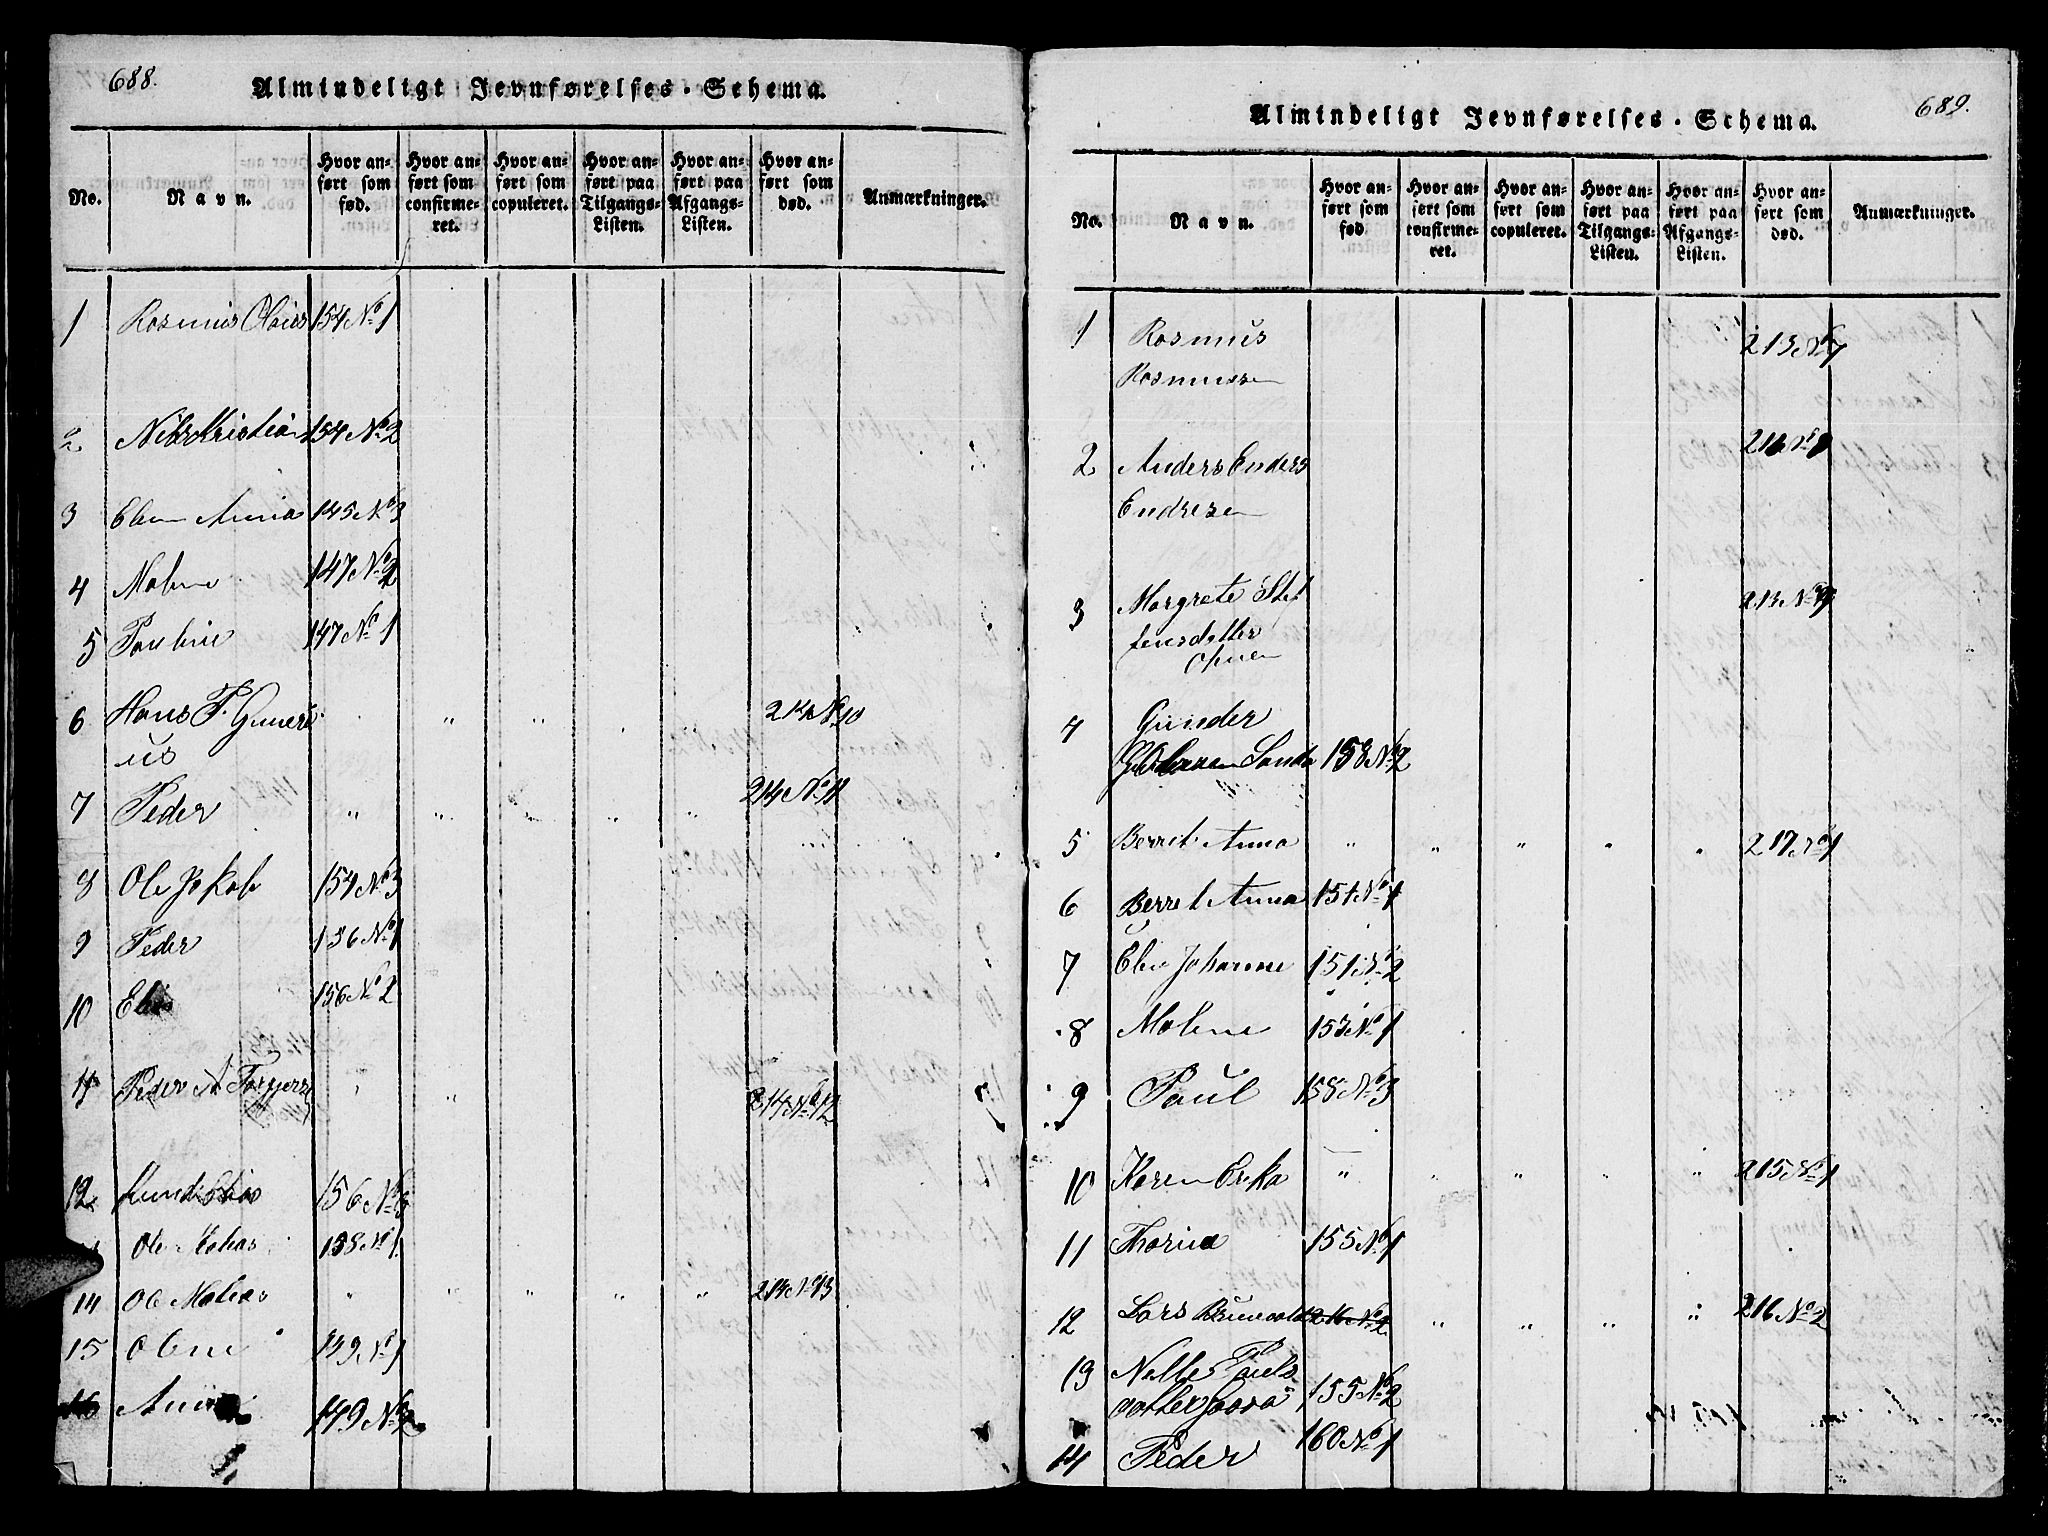 688.
Almindeligt Jevnførelses-Schema.
No. Navn. Hvor anført som fød. Hvor anført som confirmeret. Hvor anført som copuleret. Hvor anført paa Tilgangs-Listen. Hvor anført paa Afgangs-Listen. Hvor anført som død. Anmærkninger.
1 Rasmus 154 No 1
2 154 No 2
3 Anna 145 No 3
4 Maline 147 No 2
5 Pauline 147 No 1
6 Hans P. Guneri
us
7 Peder " " " " " 214 No 11
8 Ole Jakob 154 No 3
9 Peder 156 No 1
10 156 No 2
11 Peder A " " 214 No 12
12 156 No 3
Ole 158 No 1
14 Ole Matias " " " " " 214 No 13
15 Oline 149 No 1
16 149 No 2
689.
Almindeligt Jevnførelses-Schema.
No. Navn. Hvor anført som fød. Hvor anført som confirmeret. Hvor anført som copuleret. Hvor anført paa Tilgangs-Listen. Hvor anført paa Afgangs-Listen. Hvor anført som død. Anmærkninger.
1 Rasmus 213 No 7
Rasmussen
2 Anders Enders 216 No 1
Endresen
3 Margrete Stef
fensdatter
4 Gunder
158 No 2
5 Berret Anna " " " " " 217 No 1
6 Berret Anna 151 No 1
7 Eline Johanne 151 No 2
8 Maline 153 No 1
9 Paul 158 No 3
10 Karen Erika " " " " " 215 No 1
11 Thorina 155 No 1
12 Lars 216 No 2 " " " " 216 No 2
13 Nelle Pauls
datter 155 No 2
14 Peder 160 No 1